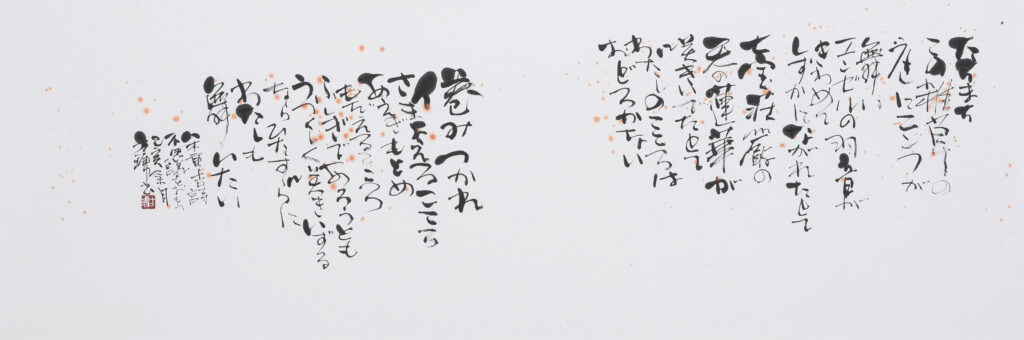 たちまち
この雑草の
庭にニンフが
舞い
エンゼルの羽音が
きわめて
しずかにながれたとて
七宝荘厳の
天の蓮華が
咲きいでたとて
わたしのこころは
おどろかない
倦みつかれ
さまよえるこころ
あえぎもとめ
もだえるこころ
ふしぎであろうとも
うつくしく咲きいずる
ならひたすらに
わたしも
舞いたい
八木重吉詩
不思議をおもう
己亥余月